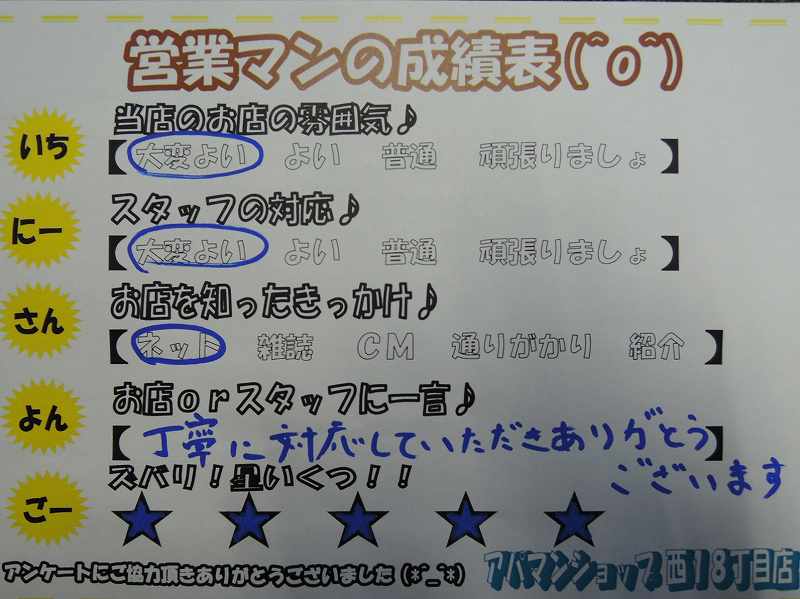 営業マンの成績表(^o^)
いち
当店のお店の雰囲気♪
【 大変よい よい 普通 頑張りましょ 】
にー
スタッフの対応♪
【 大変よい よい 普通 頑張りましょ 】
さん
お店を知ったきっかけ♪
【 ネット 雑誌 CM 通りがかり 紹介 】
よん
お店orスタッフに一言♪
【 丁寧に対応していただきありがとう 】
ございます
ごー
ズバリ！星いくつ！！
★ ★ ★ ★ ★
アンケートにご協力頂きありがとうございました(*^_^*)
アパマンショップ西18丁目店